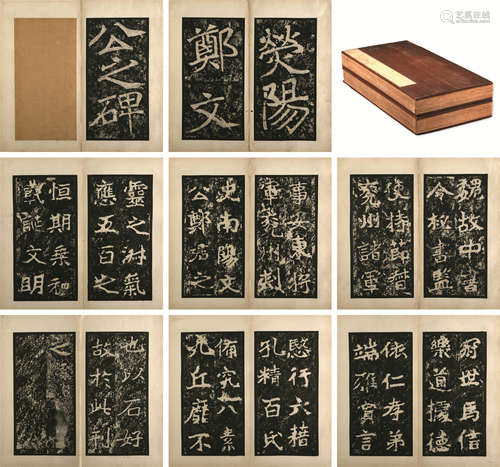 熒陽
鄭文
公之碑
艺狐在线
魏故中書
令秘書監
使持節督
兗州諸軍
事安東將
軍兗州刺
史南陽文
公鄭君之
靈之淑氣
應五百之
恒期乘和
載誕文明
冠世篤信
樂道據德
依仁孝弟
端雅寡言
愍行六藉
孔精百氏
備究八素
九丘靡不
也以石好
故於此刊
之